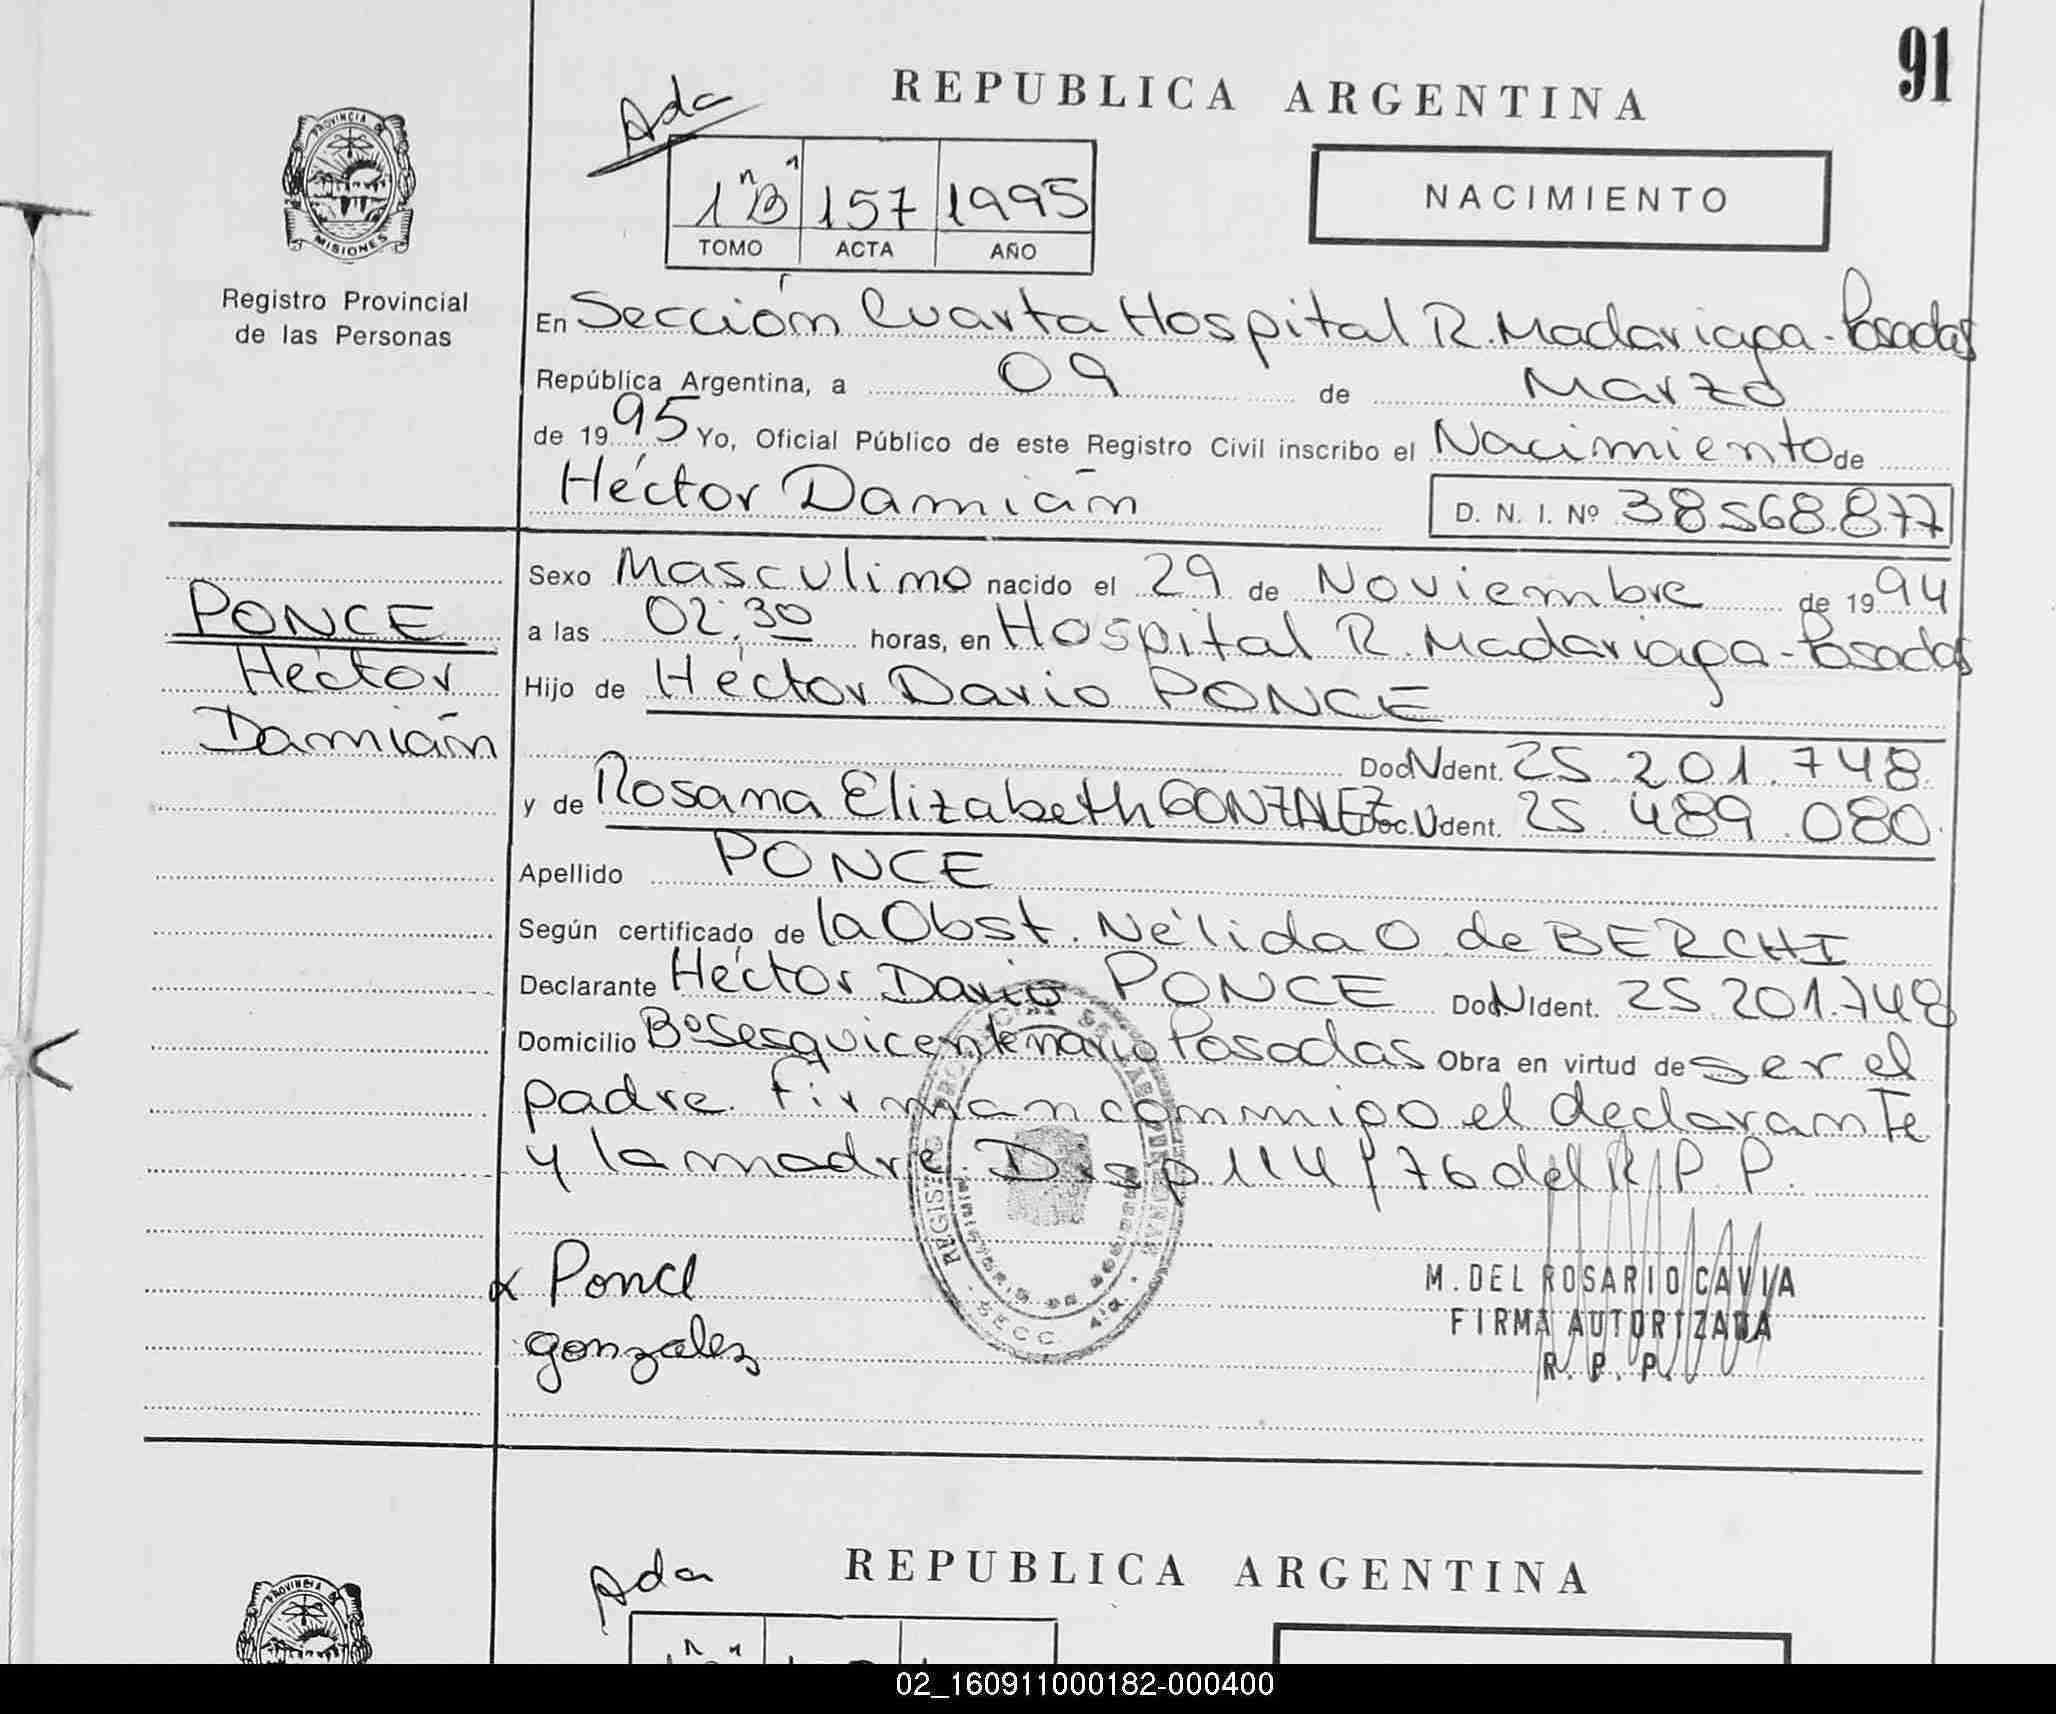 91
REPUBLICA ARGENTINA
Ada
PROVINCIA DE
MISIONES
1 "B" 157 1995
TOMO ACTA AÑO
NACIMIENTO
Registro Provincial
de las Personas
En Sección Cuarta Hospital R. Madariaga - Posadas
República Argentina, a 09 de Marzo
de 1995 Yo, Oficial Público de este Registro Civil inscribo el Nacimiento de
Héctor Damián D. N. I. Nº 38568.877
PONCE
Héctor
Damián
Sexo Masculino nacido el 29 de Noviembre de 1994
a las 02:30 horas, en Hospital R. Madariaga - Posadas
Hijo de Héctor Dario PONCE
Doc. Ident. 25.201.748
y de Rosana Elizabeth GONZALEZ Doc. Ident. 25.489.080
Apellido PONCE
Según certificado de la Obst. Nélida O. de BERCHI
Declarante Héctor Dario PONCE Doc. Ident. 25.201.748
Domicilio Bº Sesquicentenario Posadas Obra en virtud de ser el
padre. Firman conmigo el declarante
y la madre. Disp 114/76 del R.P.P.
Ponce
gonzalez
SECC. 4a.
M. DEL ROSARIO CAVIA
FIRMA AUTORIZADA
R. P. P.
Ada
REPUBLICA ARGENTINA
PROVINCIA
02_160911000182-000400